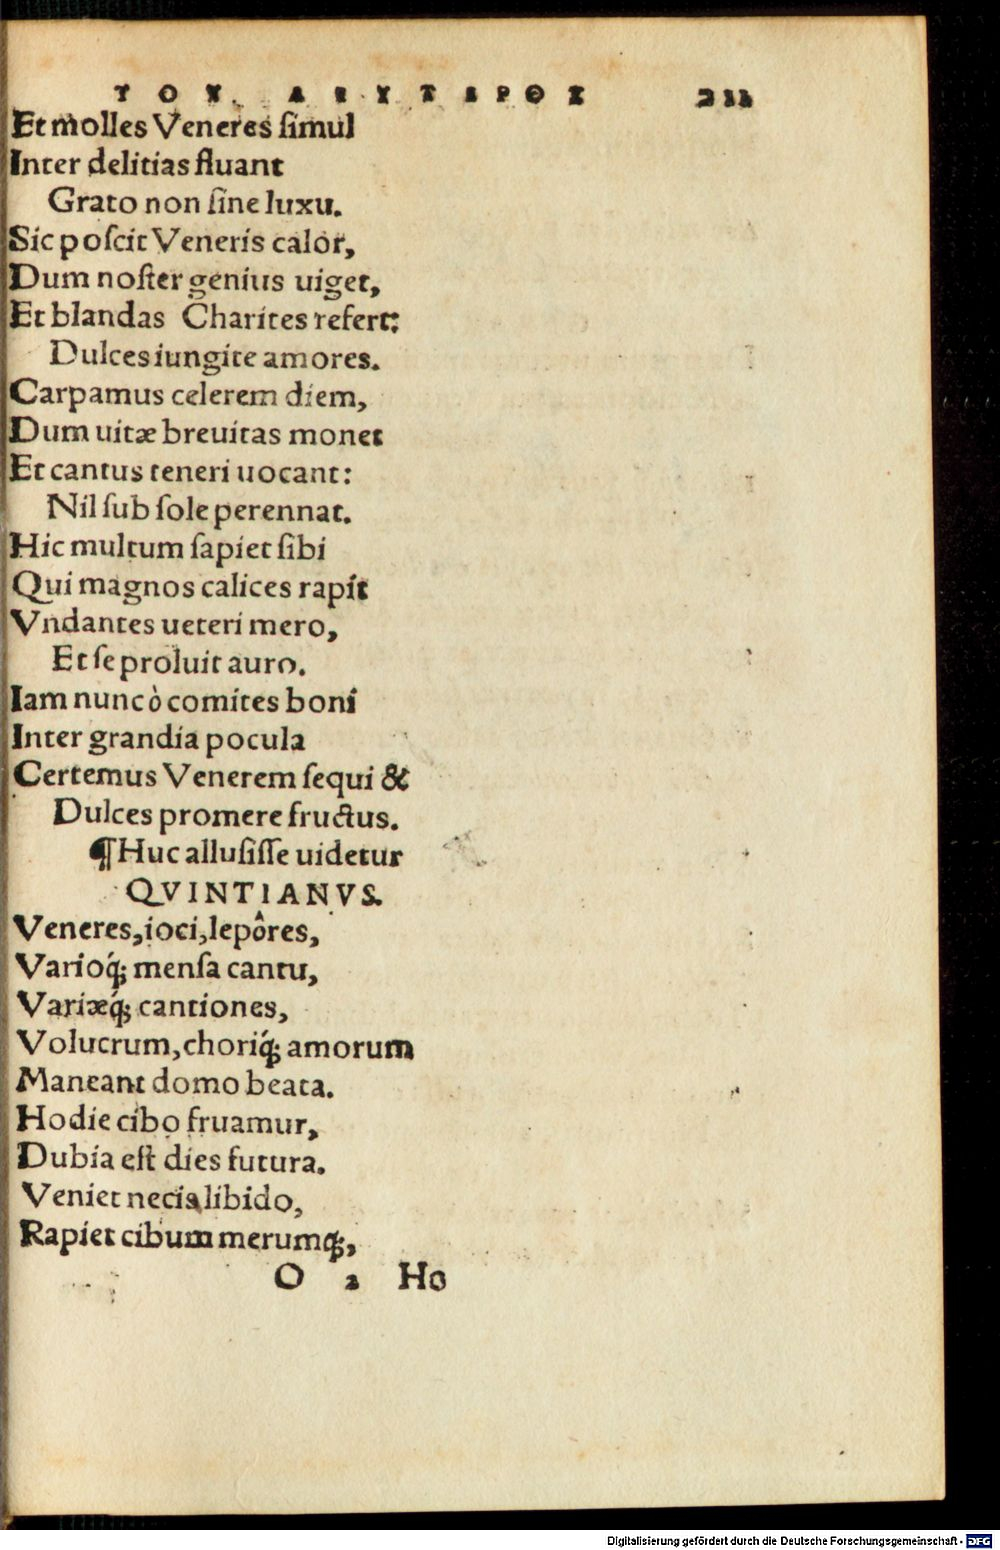 ΤΟΥ ΔΕΥΤΕΡΟΣ 211
Et molles Veneres ſimul
Inter delitias fluant
Grato non ſine luxu.
Sic poſcit Veneris calor,
Dum noſter genius uiget,
Et blandas Charites refert:
Dulces iungite amores.
Carpamus celerem diem,
Dum uitæ breuitas monet
Et cantus teneri uocant:
Nil ſub ſole perennat.
Hic multum ſapiet ſibi
Qui magnos calices rapit
Vndantes ueteri mero,
Et ſe proluit auro.
Iam nunc ò comites boni
Inter grandia pocula
Certemus Venerem ſequi &
Dulces promere fructus.
¶Huc alluſiſſe uidetur
QVINTIANVS.
Veneres, ioci, lepôres,
Varioq́; menſa cantu,
Variæq́; cantiones,
Volucrum, choriq́; amorum
Maneant domo beata.
Hodie cibo fruamur,
Dubia eſt dies futura.
Veniet necis libido,
Rapiet cibum merumq́;,
O 2 Ho
Digitalisierung gefördert durch die Deutsche Forschungsgemeinschaft - DFG